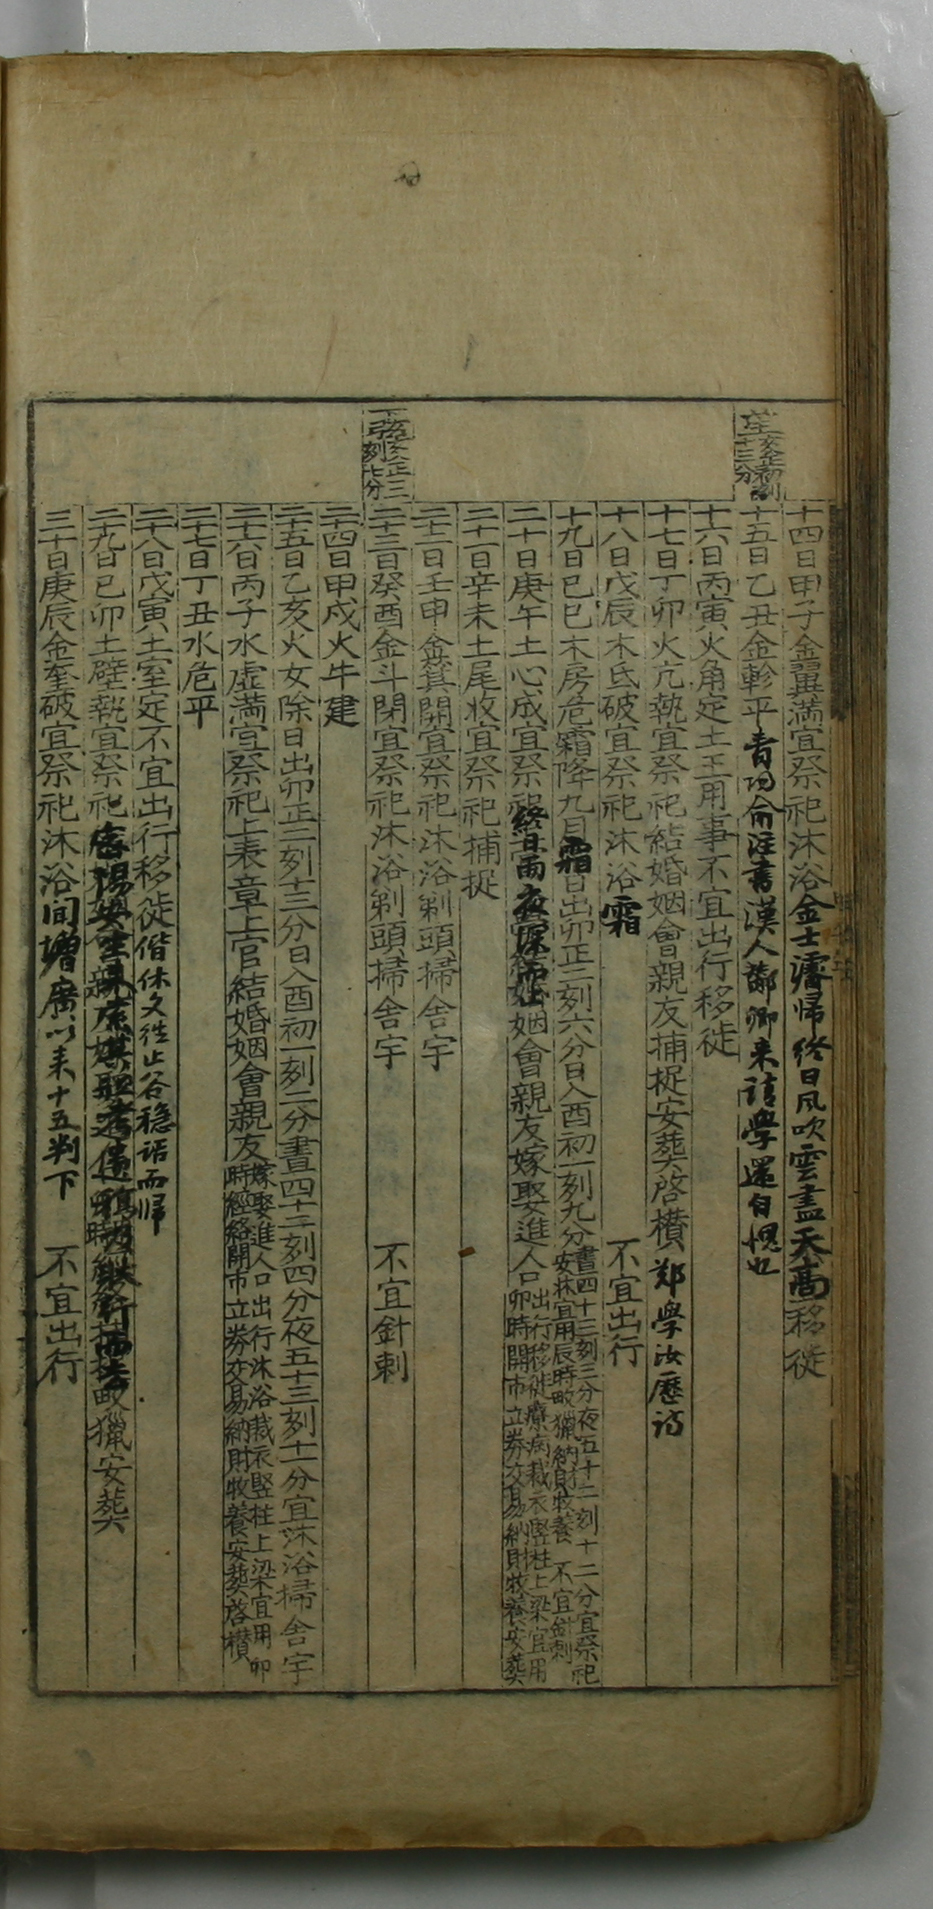 望亥正初刻十三分
十四日甲子金翼滿宜祭祀沐浴金士濬帰終日風吹雲盡天高移徙
十五日乙丑金軫平青陽俞注書漢人鄰卿来請學還自愧也
十六日丙寅火角定土王用事不宜出行移徙
十七日丁卯火亢執宜祭祀結婚姻會親友捕捉安葬啓欑鄭學汝歷訪
十八日戊辰木氐破宜祭祀沐浴霜不宜出行
十九日己巳木房危霜降九月霜日出卯正二刻六分日入酉初一刻九分晝四十三刻三分夜五十二刻十二分宜祭祀安牀宜用辰時畋獵納財牧養不宜針刺
二十日庚午土心成宜祭祀終日雨夜深而止姻會親友嫁娶進人口出行移徙療病裁衣竪柱上梁宜用卯時開市立券交易納財牧養安葬
二十一日辛未土尾收宜祭祀捕捉
二十二日壬申金箕開宜祭祀沐浴剃頭掃舍宇
下弦亥正三刻七分
二十三日癸酉金斗閉宜祭祀沐浴剃頭掃舍宇不宜針刺
二十四日甲戌火牛建
二十五日乙亥火女除日出卯正二刻十三分日入酉初一刻二分晝四十二刻四分夜五十三刻十一分宜沐浴掃舍宇
二十六日丙子水虛滿宜祭祀上表章上官結婚姻會親友嫁娶進人口出行沐浴裁衣竪柱上梁宜用卯時經絡開市立券交易納財牧養安葬啓欑
二十七日丁丑水危平
二十八日戊寅土室定不宜出行移徙偕休文徃止谷穩話而歸
二十九日己卯土壁執宜祭祀畋獵安葬
三十日庚辰金奎破宜祭祀沐浴間增廣以来十五判下不宜出行